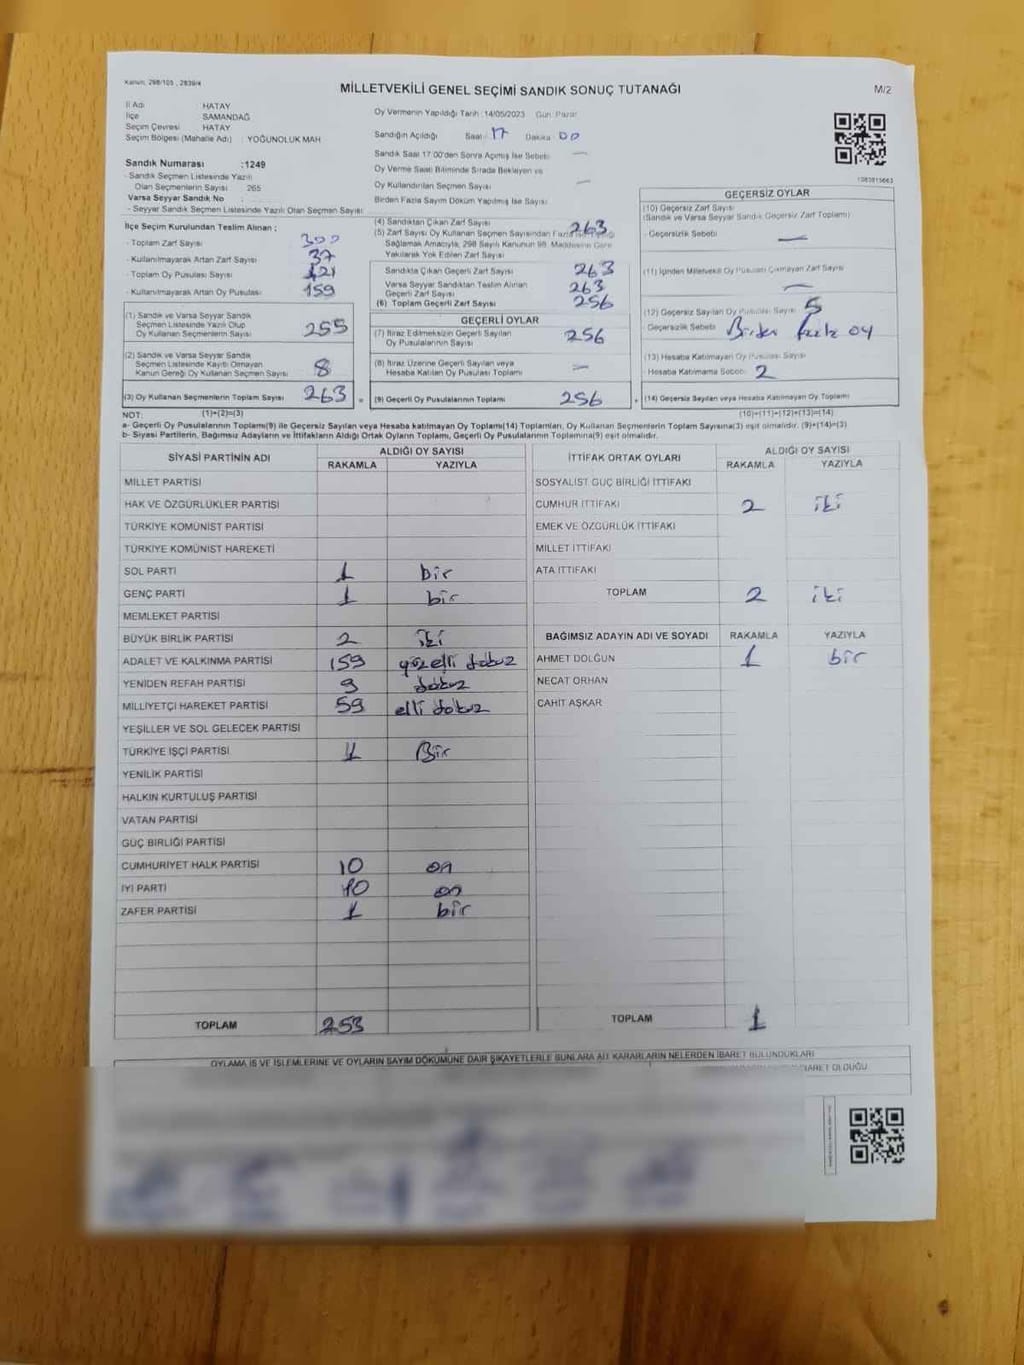 Kanun: 298/105 , 2839/4
MİLLETVEKİLİ GENEL SEÇİMİ SANDIK SONUÇ TUTANAĞI
M/2
İl Adı HATAY
İlçe SAMANDAĞ
Seçim Çevresi HATAY
Seçim Bölgesi (Mahalle Adı) : YOĞUNOLUK MAH
Sandık Numarası :1249
- Sandık Seçmen Listesinde Yazılı
Olan Seçmenlerin Sayısı 265
Varsa Seyyar Sandık No :
- Seyyar Sandık Seçmen Listesinde Yazılı Olan Seçmen Sayısı:
İlçe Seçim Kurulundan Teslim Alınan ;
- Toplam Zarf Sayısı 300
- Kullanılmayarak Artan Zarf Sayısı 37
- Toplam Oy Pusulası Sayısı 421
- Kullanılmayarak Artan Oy Pusulası 159
(1) Sandık ve Varsa Seyyar Sandık
Seçmen Listesinde Yazılı Olup
Oy Kullanan Seçmenlerin Sayısı 255
(2) Sandık ve Varsa Seyyar Sandık
Seçmen Listesinde Kayıtlı Olmayan
Kanun Gereği Oy Kullanan Seçmen Sayısı 8
(3) Oy Kullanan Seçmenlerin Toplam Sayısı 263 =
Oy Vermenin Yapıldığı Tarih :14/05/2023 Gün: Pazar
Sandığın Açıldığı Saat : 17 Dakika 00
Sandık Saat 17:00'den Sonra Açılmış İse Sebebi —
Oy Verme Saati Bitiminde Sırada Bekleyen ve
Oy Kullandırılan Seçmen Sayısı —
Birden Fazla Sayım Döküm Yapılmış İse Sayısı
(4) Sandıktan Çıkan Zarf Sayısı 263
(5) Zarf Sayısı Oy Kullanan Seçmen Sayısından Fazla İse Eşitliği
Sağlamak Amacıyla, 298 Sayılı Kanunun 98. Maddesine Göre
Yakılarak Yok Edilen Zarf Sayısı
Sandıkta Çıkan Geçerli Zarf Sayısı 263
Varsa Seyyar Sandıktan Teslim Alınan
Geçerli Zarf Sayısı 263
(6) Toplam Geçerli Zarf Sayısı 256
GEÇERLİ OYLAR
(7) İtiraz Edilmeksizin Geçerli Sayılan
Oy Pusulalarının Sayısı 256
(8) İtiraz Üzerine Geçerli Sayılan veya
Hesaba Katılan Oy Pusulası Toplamı —
(9) Geçerli Oy Pusulalarının Toplamı 256 +
1083815663
GEÇERSİZ OYLAR
(10) Geçersiz Zarf Sayısı
(Sandık ve Varsa Seyyar Sandık Geçersiz Zarf Toplamı)
- Geçersizlik Sebebi —
(11) İçinden Milletvekili Oy Pusulası Çıkmayan Zarf Sayısı
—
(12) Geçersiz Sayılan Oy Pusulası Sayısı 5
- Geçersizlik Sebebi Birden fazla oy
(13) Hesaba Katılmayan Oy Pusulası Sayısı
- Hesaba Katılmama Sebebi 2
(14) Geçersiz Sayılan veya Hesaba Katılmayan Oy Pusulası Toplamı
NOT: (1)+(2)=(3) (10)+(11)+(12)+(13)=(14)
a- Geçerli Oy Pusulalarının Toplamı(9) ile Geçersiz Sayılan veya Hesaba katılmayan Oy Toplamı(14) Toplamları, Oy Kullanan Seçmenlerin Toplam Sayısına(3) eşit olmalıdır. (9)+(14)=(3)
b- Siyasi Partilerin, Bağımsız Adayların ve İttifakların Aldığı Ortak Oyların Toplamı, Geçerli Oy Pusulalarının Toplamına(9) eşit olmalıdır.
SİYASİ PARTİNİN ADI ALDIĞI OY SAYISI
RAKAMLA YAZIYLA
MİLLET PARTİSİ
HAK VE ÖZGÜRLÜKLER PARTİSİ
TÜRKİYE KOMÜNİST PARTİSİ
TÜRKİYE KOMÜNİST HAREKETİ
SOL PARTİ 1 bir
GENÇ PARTİ 1 bir
MEMLEKET PARTİSİ
BÜYÜK BİRLİK PARTİSİ 2 iki
ADALET VE KALKINMA PARTİSİ 159 yüzelli dokuz
YENİDEN REFAH PARTİSİ 9 dokuz
MİLLİYETÇİ HAREKET PARTİSİ 59 elli dokuz
YEŞİLLER VE SOL GELECEK PARTİSİ
TÜRKİYE İŞÇİ PARTİSİ 1 Bir
YENİLİK PARTİSİ
HALKIN KURTULUŞ PARTİSİ
VATAN PARTİSİ
GÜÇ BİRLİĞİ PARTİSİ
CUMHURİYET HALK PARTİSİ 10 on
İYİ PARTİ 10 on
ZAFER PARTİSİ 1 bir
TOPLAM 253
İTTİFAK ORTAK OYLARI ALDIĞI OY SAYISI
RAKAMLA YAZIYLA
SOSYALİST GÜÇ BİRLİĞİ İTTİFAKI
CUMHUR İTTİFAKI 2 iki
EMEK VE ÖZGÜRLÜK İTTİFAKI
MİLLET İTTİFAKI
ATA İTTİFAKI
TOPLAM 2 iki
BAĞIMSIZ ADAYIN ADI VE SOYADI RAKAMLA YAZIYLA
AHMET DOLĞUN 1 bir
NECAT ORHAN
CAHİT AŞKAR
TOPLAM 1
OYLAMA İŞ VE İŞLEMLERİNE VE OYLARIN SAYIM DÖKÜMÜNE DAİR ŞİKAYETLERLE BUNLARA AİT KARARLARIN NELERDEN İBARET BULUNDUKLARI
İBARET OLDUĞU